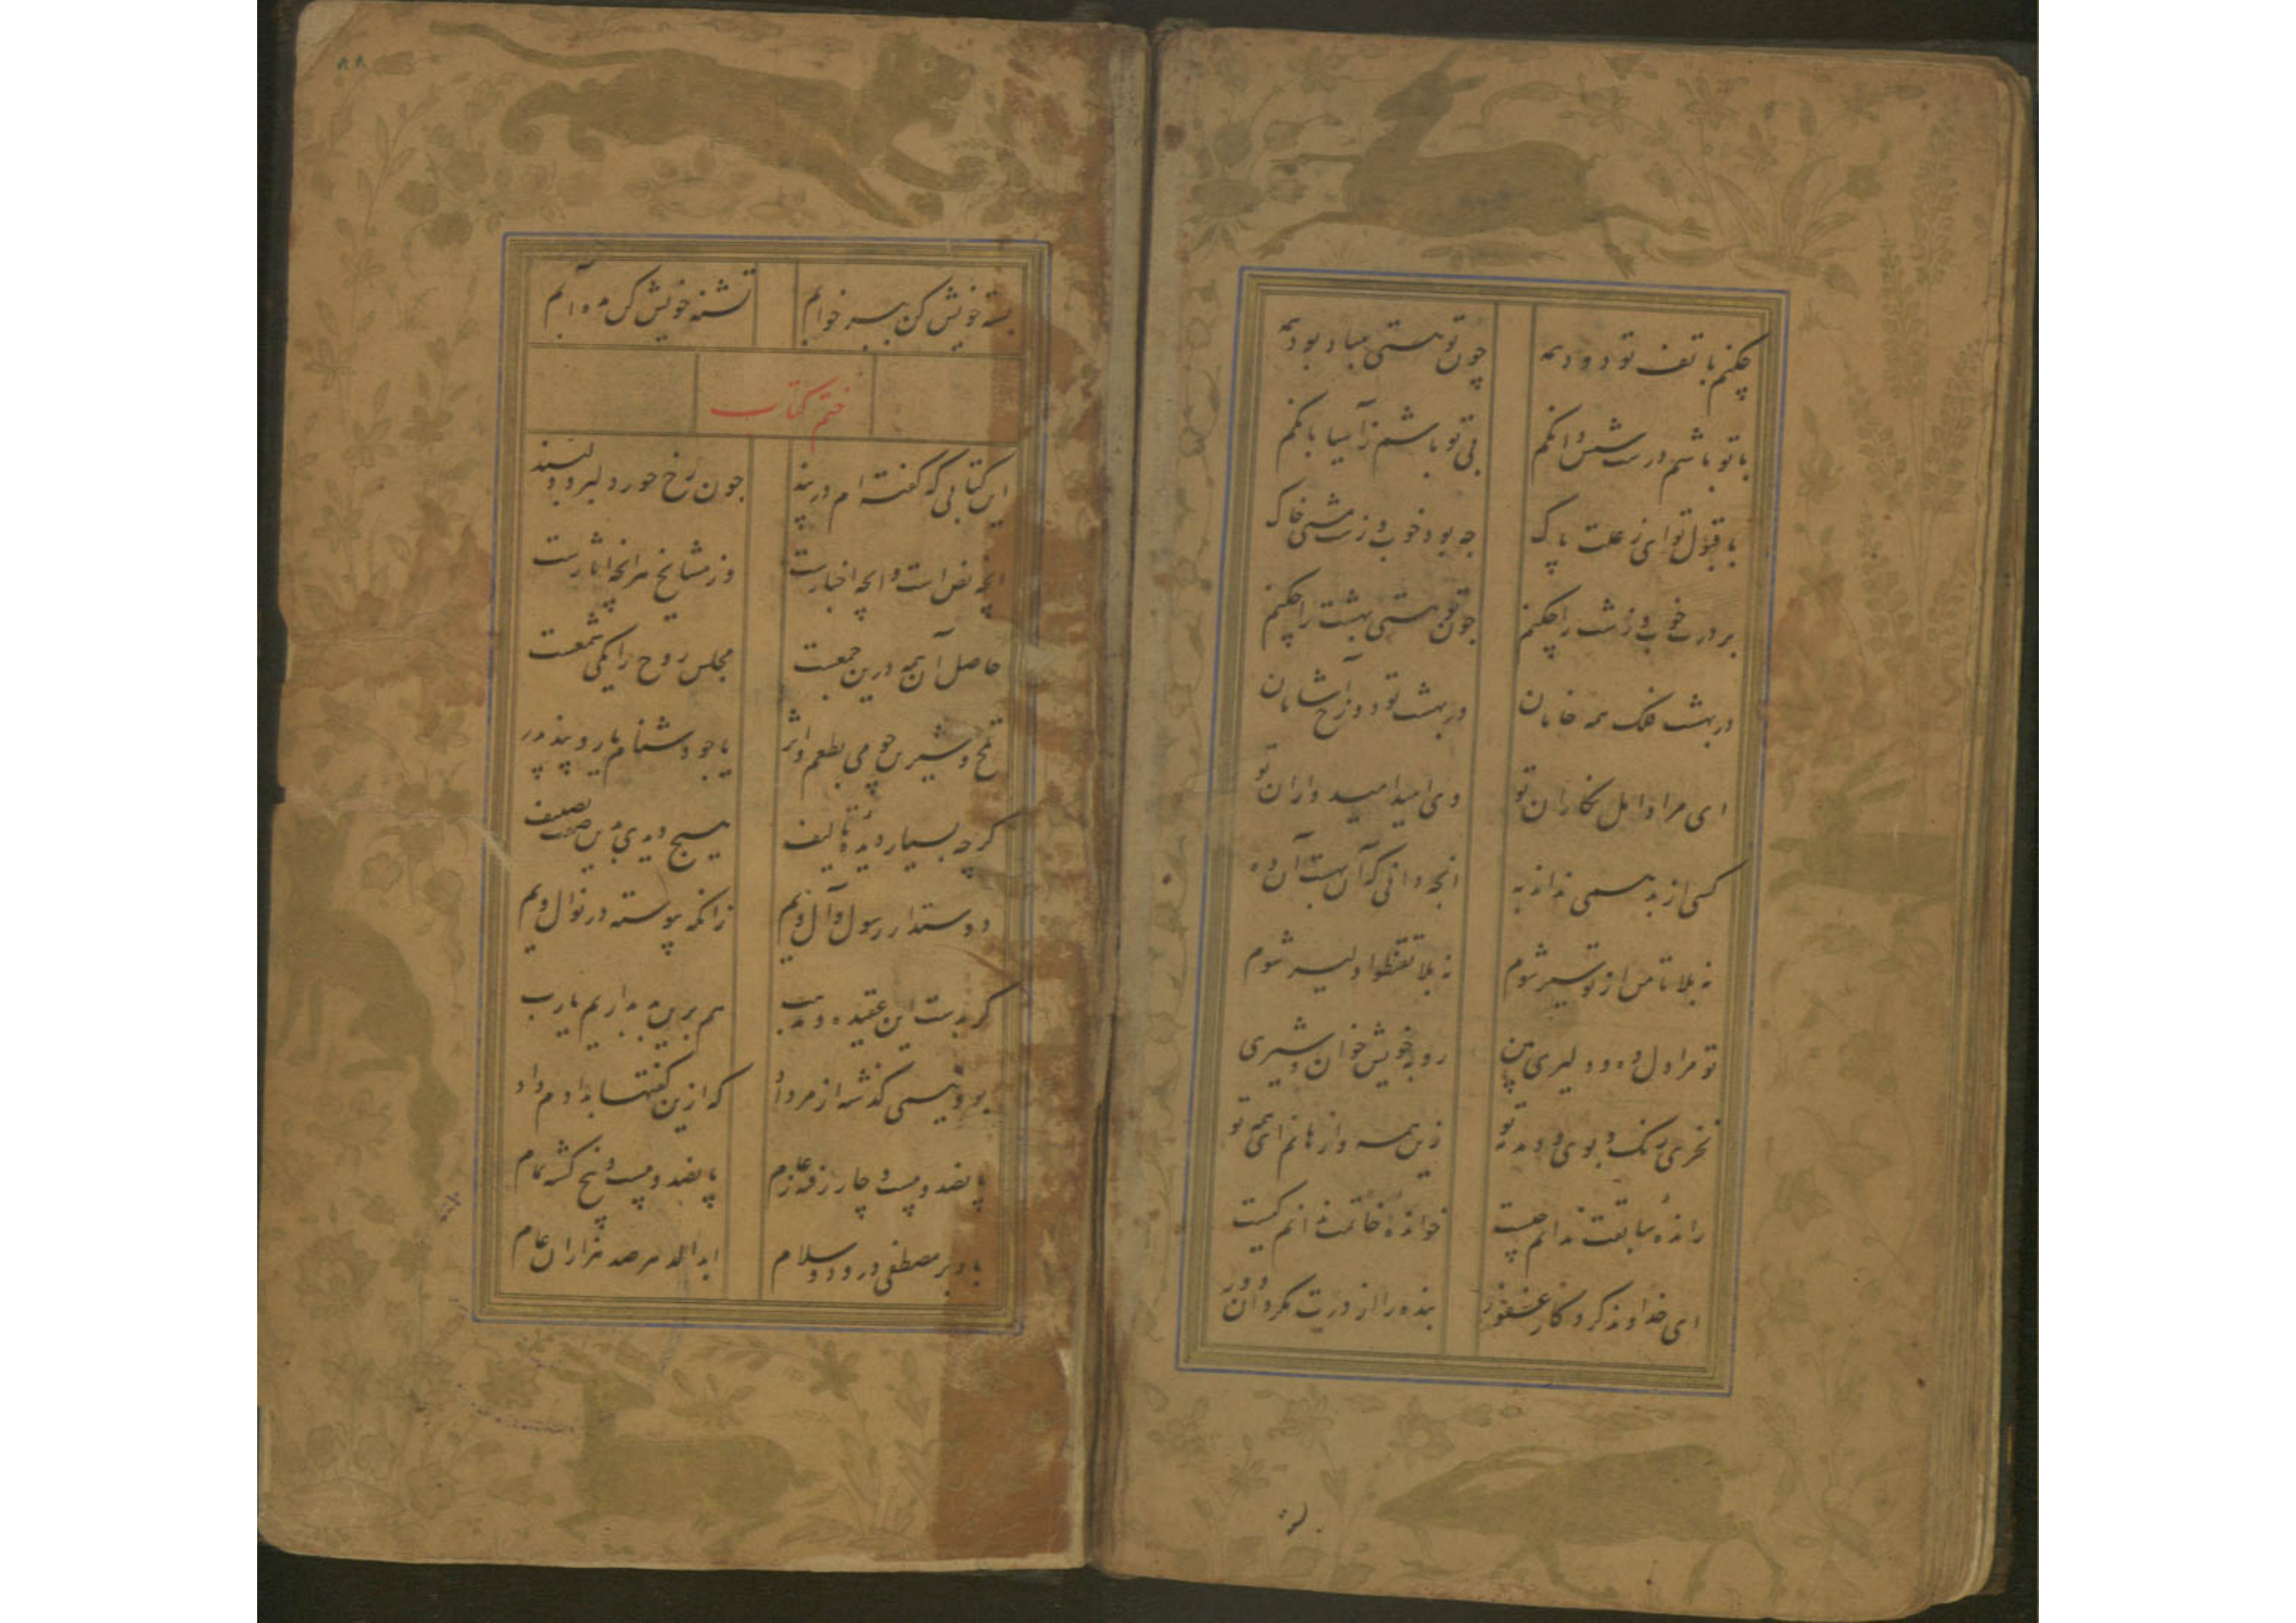 چکنم با تف تو دود همه چون تو هستی مباد بود همه
با تو باشم درست شش دانکم بی تو باشم ز آسیا بانکم
با قبول تو ای ز علت پاک چه بود خوب و زشت مشتی خاک
بر درت خوب و زشت را چکنم چون تو هستی بهشت را چکنم
در بهشت فلک همه خامان در بهشت تو دوزخ آشامان
ای مراد امل نکاران تو وی امید امیدواران تو
کسی از بد همی نداند به انچه دانی که آن بهست آن ده
نه بلا تأمن از تو سیر شوم نه بلا تقنطوا دلیر شوم
تو مرا دل ده و دلیری بین رو به خویش خوان و شیری
نخری رنک و بوی و دمدمه تو زین همه وارهانم ای همه تو
رانده سابقت ندانم چیست خوانده خاتمت ندانم کیست
ای خداوند کردکار غفور بنده را از درت مکردان دور
بسته خویش کن ببر خوابم تشنه خویش کن مده آبم
ختم کتاب
این کتابی که کفته ام در پند چون رخ حور دلبر و دلبند
انچه نص است و انچه اخبارست وز مشایخ هر انچه آثارست
حاصل آن همه درین جمعست مجلس روح را یکی شمعست
تلخ و شیرین چو می بطعم و اثر یا چو دشنام یار و پند پدر
کرچه بسیار دیده تالیف هیچ دیدی بدین صفت تصنیف
دوستدار رسول و آل ویم زانکه پیوسته در نوال ویم
کر بدست این عقیده و مذهب هم برین بد بداریم یارب
بود نیمی کذشته از مرداد که ازین کفتها بدادم داد
پانصد و بیست و چار رفته ز عام پانصد و بیست و پنج کشته تمام
باد بر مصطفی درود و سلام ابد الدهر صد هزاران عام